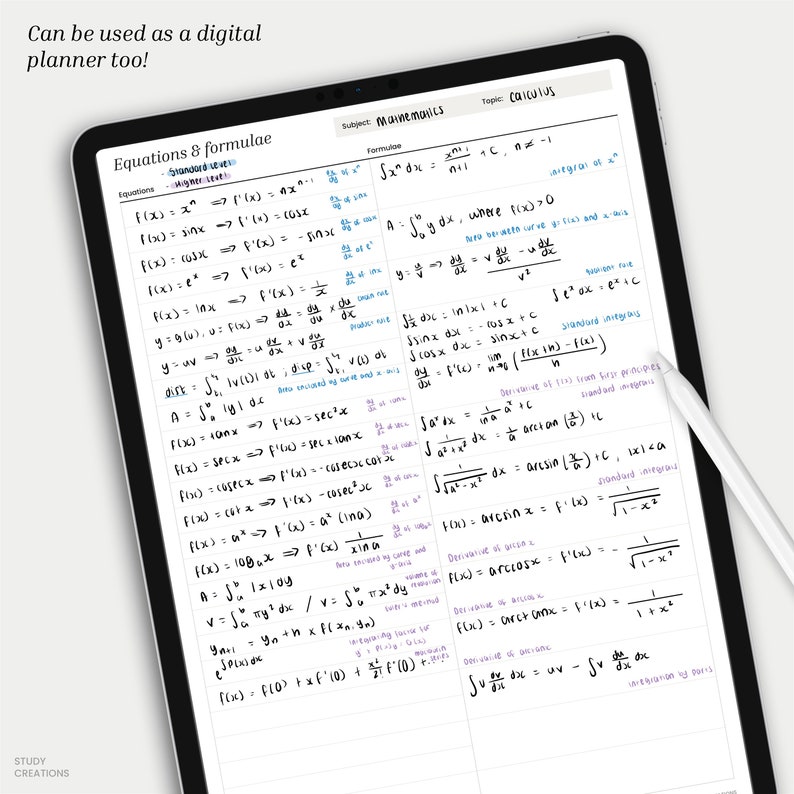 Can be used as a digital
planner too!
Equations & formulae
Subject: Mathematics
Topic: Calculus
- Standard Level
- Higher Level
Equations
f(x) = xⁿ ⇒ f'(x) = nxⁿ⁻¹ dx/dy of xⁿ
f(x) = sinx ⇒ f'(x) = cosx dx/dy of sinx
f(x) = cosx ⇒ f'(x) = -sinx dx/dy of cosx
f(x) = eˣ ⇒ f'(x) = eˣ dy/dx of eˣ
f(x) = lnx ⇒ f'(x) = 1/x dy/dx of lnx
y = g(u), u = f(x) ⇒ dy/dx = dy/du × du/dx chain rule
y = uv ⇒ dy/dx = u dv/dx + v du/dx product rule
dist = ∫ₜ₁ᵗ² |v(t)| dt ; disp = ∫ₜ₁ᵗ² v(t) dt
A = ∫ₐᵇ |y| dx Area enclosed by curve and x-axis
f(x) = tanx ⇒ f'(x) = sec²x dy/dx of tanx
f(x) = secx ⇒ f'(x) = secx tanx dy/dx of secx
f(x) = cosecx ⇒ f'(x) = -cosecx cotx dy/dx of cosecx
f(x) = cotx ⇒ f'(x) -cosec²x dy/dx of cotx
f(x) = aˣ ⇒ f'(x) = aˣ (ln a) dy/dx of aˣ
f(x) = logₐx ⇒ f'(x) 1/(x ln a) dy/dx of logₐx
A = ∫ₐᵇ |x| dy Area enclosed by curve and y-axis
V = ∫ₐᵇ πy² dx / V = ∫ₐᵇ πx² dy volume of revolution
yₙ₊₁ = yₙ + h × f(xₙ, yₙ) Euler's method
e^∫P(x)dx integrating factor for
y' = P(x)y = Q(x)
f(x) = f(0) + x f'(0) + x²/2! f''(0) + ... maclaurin series
Formulae
∫xⁿ dx = xⁿ⁺¹/(n+1) + C, n ≠ -1
integral of xⁿ
A = ∫ₐᵇ y dx, where f(x) > 0
Area between curve y=f(x) and x-axis
y = u/v ⇒ dy/dx = (v du/dx - u dv/dx)/v²
quotient rule
∫1/x dx = ln|x| + C ∫eˣ dx = eˣ + C
∫sinx dx = -cosx + C
∫cosx dx = sinx + C standard integrals
dy/dx = f'(x) = lim h→0 ((f(x+h) - f(x))/h)
Derivative of f(x) from first principles
standard integrals
∫aˣ dx = 1/(ln a) aˣ + C
∫ 1/(a²+x²) dx = 1/a arctan (x/a) + C
∫ 1/√(a²-x²) dx = arcsin (x/a) + C, |x| < a
standard integrals
f(x) = arcsin x = f'(x) = 1/√(1-x²)
Derivative of arcsinx
f(x) = arccosx = f'(x) = - 1/√(1-x²)
Derivative of arccosx
f(x) = arctanx = f'(x) = 1/(1+x²)
Derivative of arctanx
∫v dv/dx dx = uv - ∫v du/dx dx
integration by parts
STUDY
CREATIONS